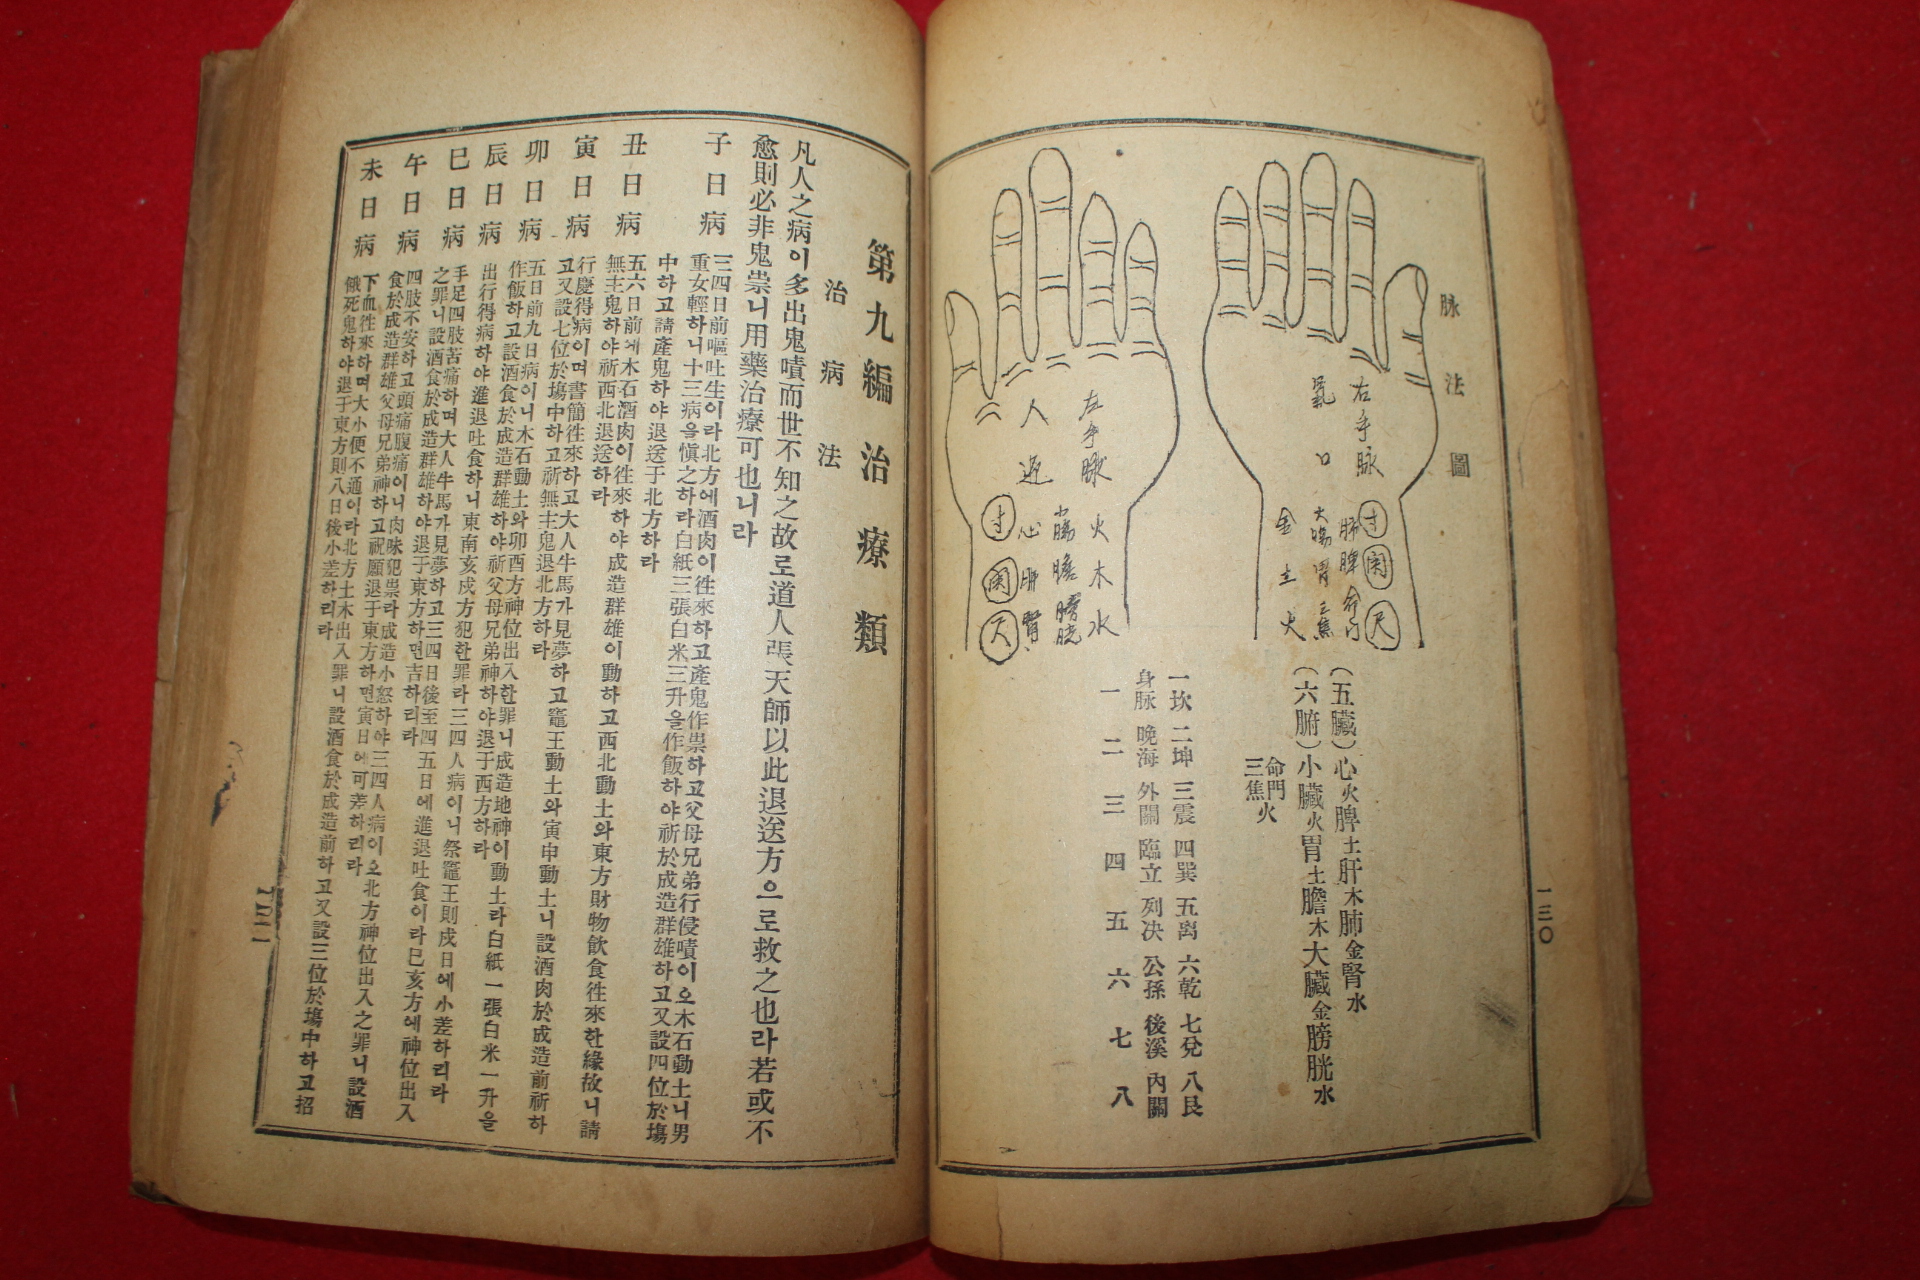 脉法圖
右手脉
氣口
寸 関 尺
肺 脾 命门
大腸 胃 三焦
金 土 火
左手脉
人迎
火 木 水
小腸 膽 膀胱
心 肝 腎
寸 関 尺
(五臟)心火脾土肝木肺金腎水
(六腑)小臟火胃土膽木大臟金膀胱水
命門
三焦火
一坎 二坤 三震 四巽 五离 六乾 七兌 八艮
身脉 晩海 外關 臨立 列決 公孫 後溪 內關
一 二 三 四 五 六 七 八
一三〇
第九編 治療類
治病法
凡人之病이多出鬼嘖而世不知之故로道人張天師以此退送方으로救之也라若或不
愈則必非鬼祟니用藥治療可也니라
子日病
三四日前嘔吐生이라北方에酒肉이徃來하고產鬼作祟하고父母兄弟行侵嘖이오木石動土니男
重女輕하니十三病을愼之하라白紙三張白米三升을作飯하야祈於成造群雄하고又設四位於塲
中하고請產鬼하야退送于北方하라
丑日病
五六日前에木石酒肉이徃來하야成造群雄이動하고西北動土와東方財物飮食徃來한緣故니請
無主鬼하야祈西北退送하라
寅日病
行慶得病이며書簡徃來하고大人牛馬가見夢하고竈王動土와寅申動土니設酒肉於成造前祈하
고又設七位於塲中하고祈無主鬼退北方하라
卯日病
五日前九日病이니木石動土와卯酉方神位出入한罪니成造地神이動土라白紙一張白米一升을
作飯하고設酒食於成造群雄하야祈父母兄弟神하야退于西方하라
辰日病
出行得病하야進退吐食하니東南亥戌方犯한罪라三四人病이니祭竈王則戌日에小差하리라
巳日病
手足四肢苦痛하며大人牛馬가見夢하고三四日後至四五日에進退吐食이라巳亥方에神位出入
之罪니設酒食於成造群雄하야退于東方하면吉하리라
午日病
四肢不安하고頭痛腹痛이니肉味犯祟라成造小怒하야三四人病이오北方神位出入之罪니設酒
食於成造群雄父母兄弟神하고祝願退于東方하면寅日에可差하리라
未日病
下血徃來하며大小便不通이라北方土木出入罪니設酒食於成造前하고又設三位於塲中하고招
餓死鬼하야退于東方則八日後小差하리라